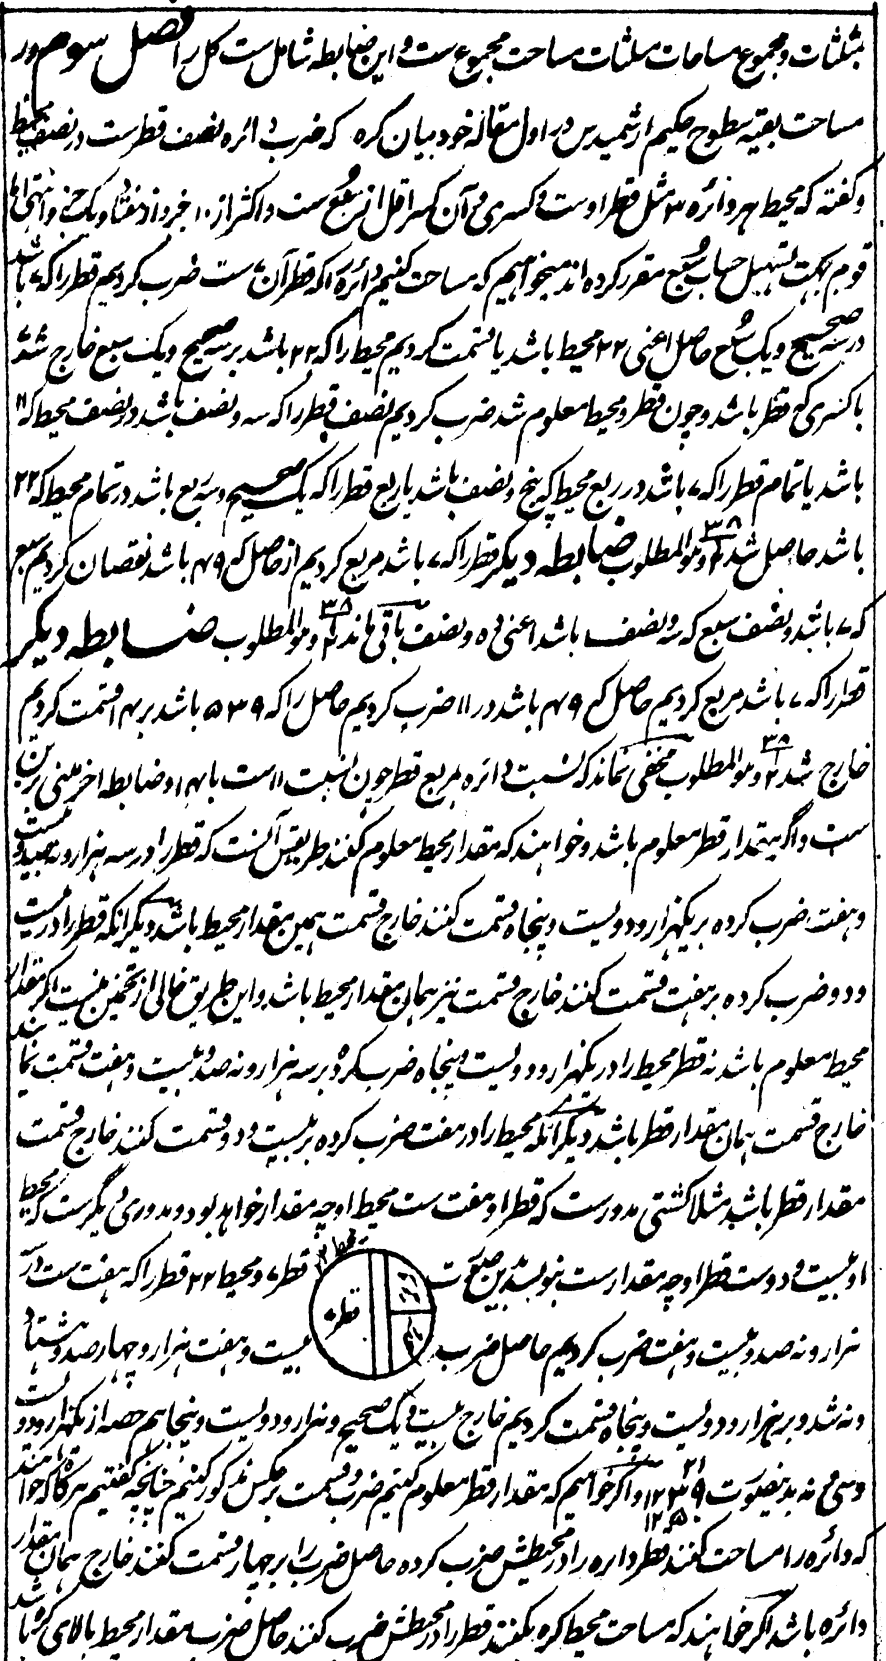 مثلثات و مجموع مساحات مثلثات مساحت مجموع ست و این ضابطه شامل ست کل را فصل سوم در
مساحت بقیه سطوح حکیم ارشمیدس در اول مقاله خود بیان کرده که ضرب دائره نصف قطرست در نصف محیط
و گفته که محیط هر دائره ۳ مثل قطر اوست و کسری که آن کسر اقل از سبع ست و اکثر از ۱۰ جزء از هفتاد و یک جزء و
قوم بجهت تسهیل حساب سبع مقرر کرده اند میخواهیم که مساحت کنیم دائره را که قطر آن ۷ ست ضرب کردیم قطر را که ۷ باشد
در سه صحیح و یک سبع حاصل اعنی ۲۲ محیط باشد یا قسمت کردیم محیط را که ۲۲ باشد بر سه صحیح و یک سبع خارج شد ۷
با کسری که قطر باشد و چون قطر و محیط معلوم شد ضرب کردیم نصف قطر را که سه و نصف باشد در نصف محیط که ۱۱
باشد یا تمام قطر را که ۷ باشد در ربع محیط که پنج و نصف باشد یا ربع قطر را که یک صحیح و سه ربع باشد در تمام محیط که ۲۲
باشد حاصل شد ۳۸ ۲ وهو المطلوب ضابطه دیگر قطر را که ۷ باشد مربع کردیم از حاصل که ۴۹ باشد نقصان کردیم سبع
که ۷ باشد و نصف سبع که سه و نصف باشد اعنی ده و نصف باقی ماند ۳۸ ۲ وهو المطلوب ضابطه دیگر
قطر را که ۷ باشد مربع کردیم حاصل که ۴۹ باشد در ۱۱ ضرب کردیم حاصل را که ۵۳۹ باشد بر ۱۴ قسمت کردیم
خارج شد ۳۸ ۲ وهو المطلوب مخفی نماند که نسبت دائره بمربع قطر چون نسبت ۱۱ ست با ۱۴ و ضابطه اخر مبنی برین
ست و اگر مقدار قطر معلوم باشد و خواهند که مقدار محیط معلوم کنند طریقش آنست که قطر را در سه هزار و نه صد و بیست
و هفت ضرب کرده بر یکهزار و دو لیست و پنجاه قسمت کنند خارج قسمت همین مقدار محیط باشد دیگر انکه قطر را در بیست
و دو ضرب کرده بر هفت قسمت کنند خارج قسمت نیز همان مقدار محیط باشد و این طریق خالی از تخمین نیست اگر مقدار
محیط معلوم باشد نه قطر محیط را در یکهزار و دو لیست و پنجاه ضرب کرده بر سه هزار و نه صد و بیست و هفت قسمت نمایند
خارج قسمت همان مقدار قطر باشد دیگر انکه محیط را در هفت ضرب کرده بر بیست و دو قسمت کنند خارج قسمت
مقدار قطر باشد مثلا کشتی مدورست که قطر او هفت ست محیط او چه مقدار خواهد بود و مدوری دیگرست که محیط
او بیست و دوست قطر او چه مقدارست بنویسند بدین صورت قطر ۷ و محیط ۲۲ قطر را که هفت ست در سه
هزار و نه صد و بیست و هفت ضرب کردیم حاصل ضرب بیست و هفت هزار و چهار صد و هشتاد
و نه شد و بر هزار و دو لیست و پنجاه قسمت کردیم خارج بیست و یک صحیح و هزار و دو لیست و پنجاهم حصه از یکهزار و دو لیست
وسی و نه بدینصورت ۲۱ ۱۲۳۹ ۱۲۵۰ و اگر خواهیم که مقدار قطر معلوم کنیم ضرب و قسمت برعکس مذکور کنیم چنانچه گفتیم هرگاه که خواهند
که دائره را مساحت کنند قطر دایره را در محیطش ضرب کرده حاصل ضرب را بر چهار قسمت کنند خارج همان مقدار
دائره باشد اگر خواهند که مساحت محیط کره بکنند قطر را در محیطش ضرب کنند حاصل ضرب مقدار محیط بالای کره باشد